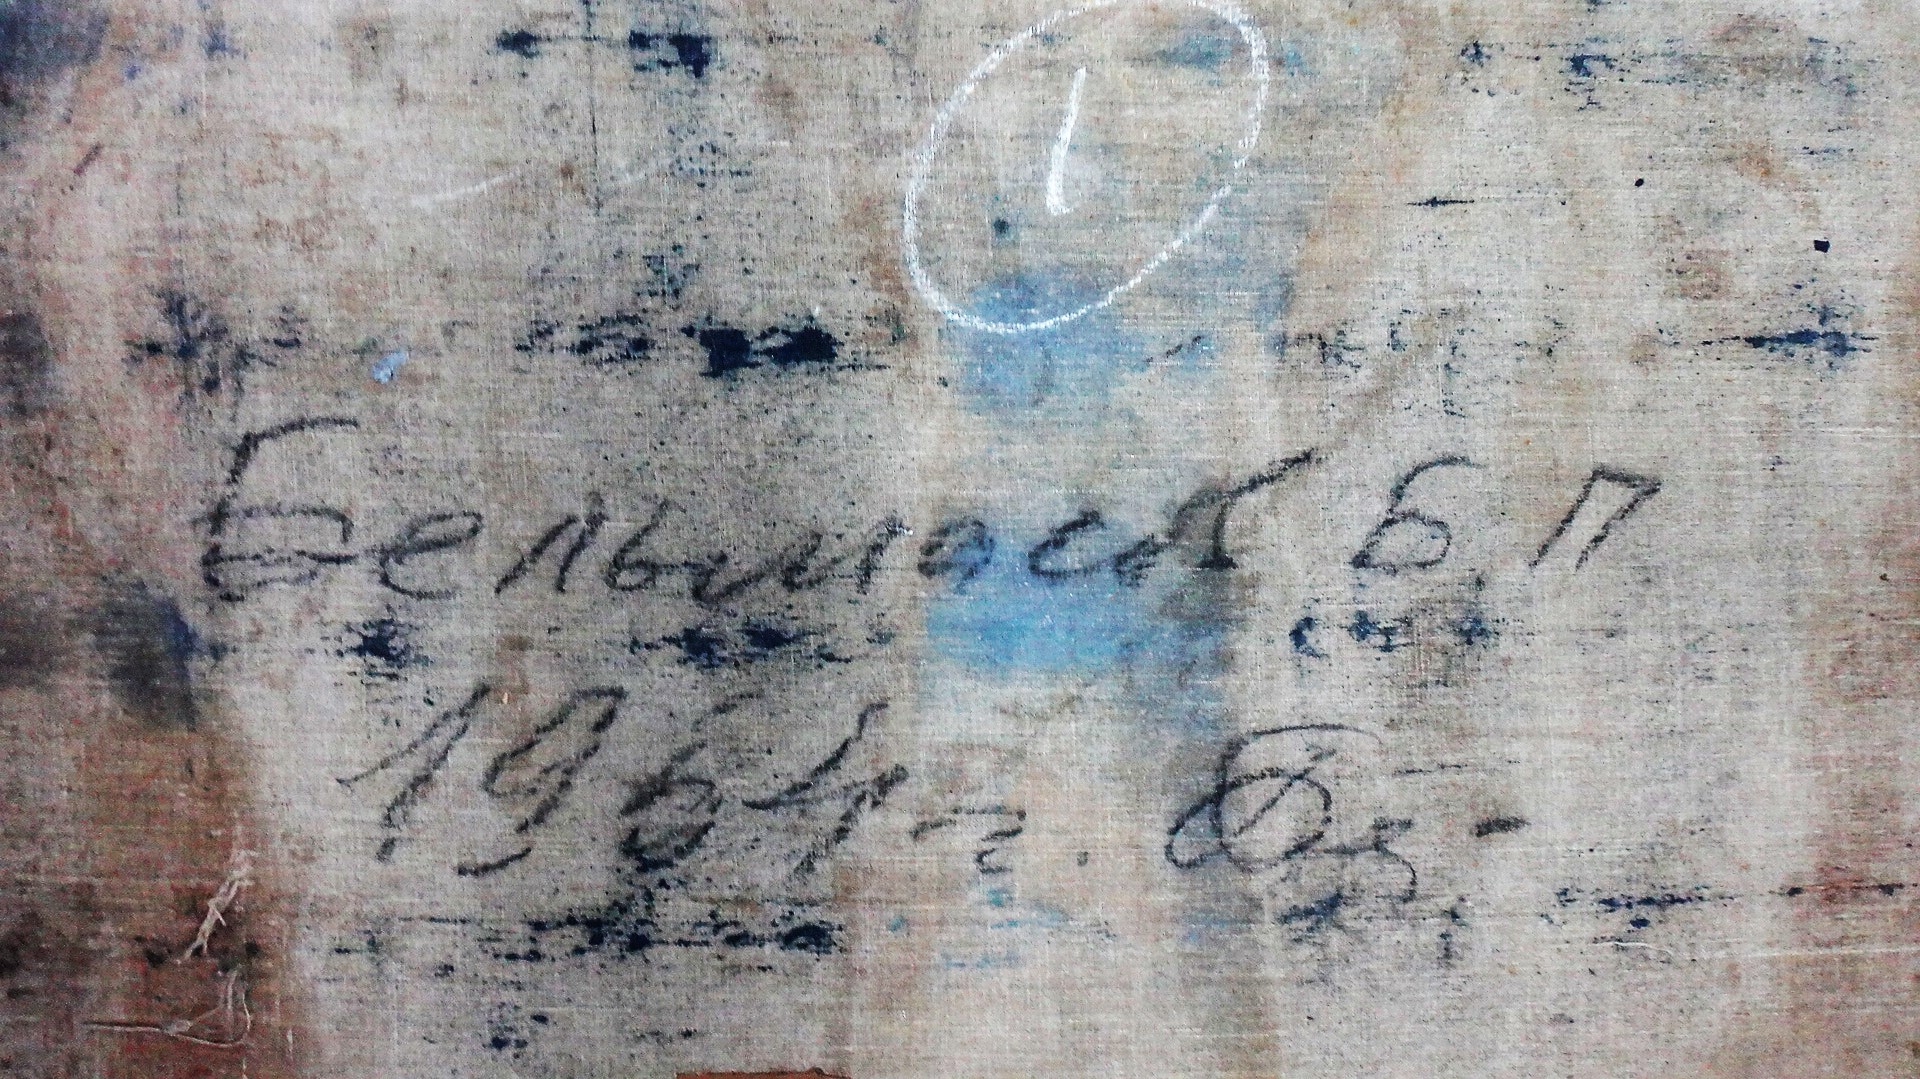 1
Бельмасов Б П
1964 г.